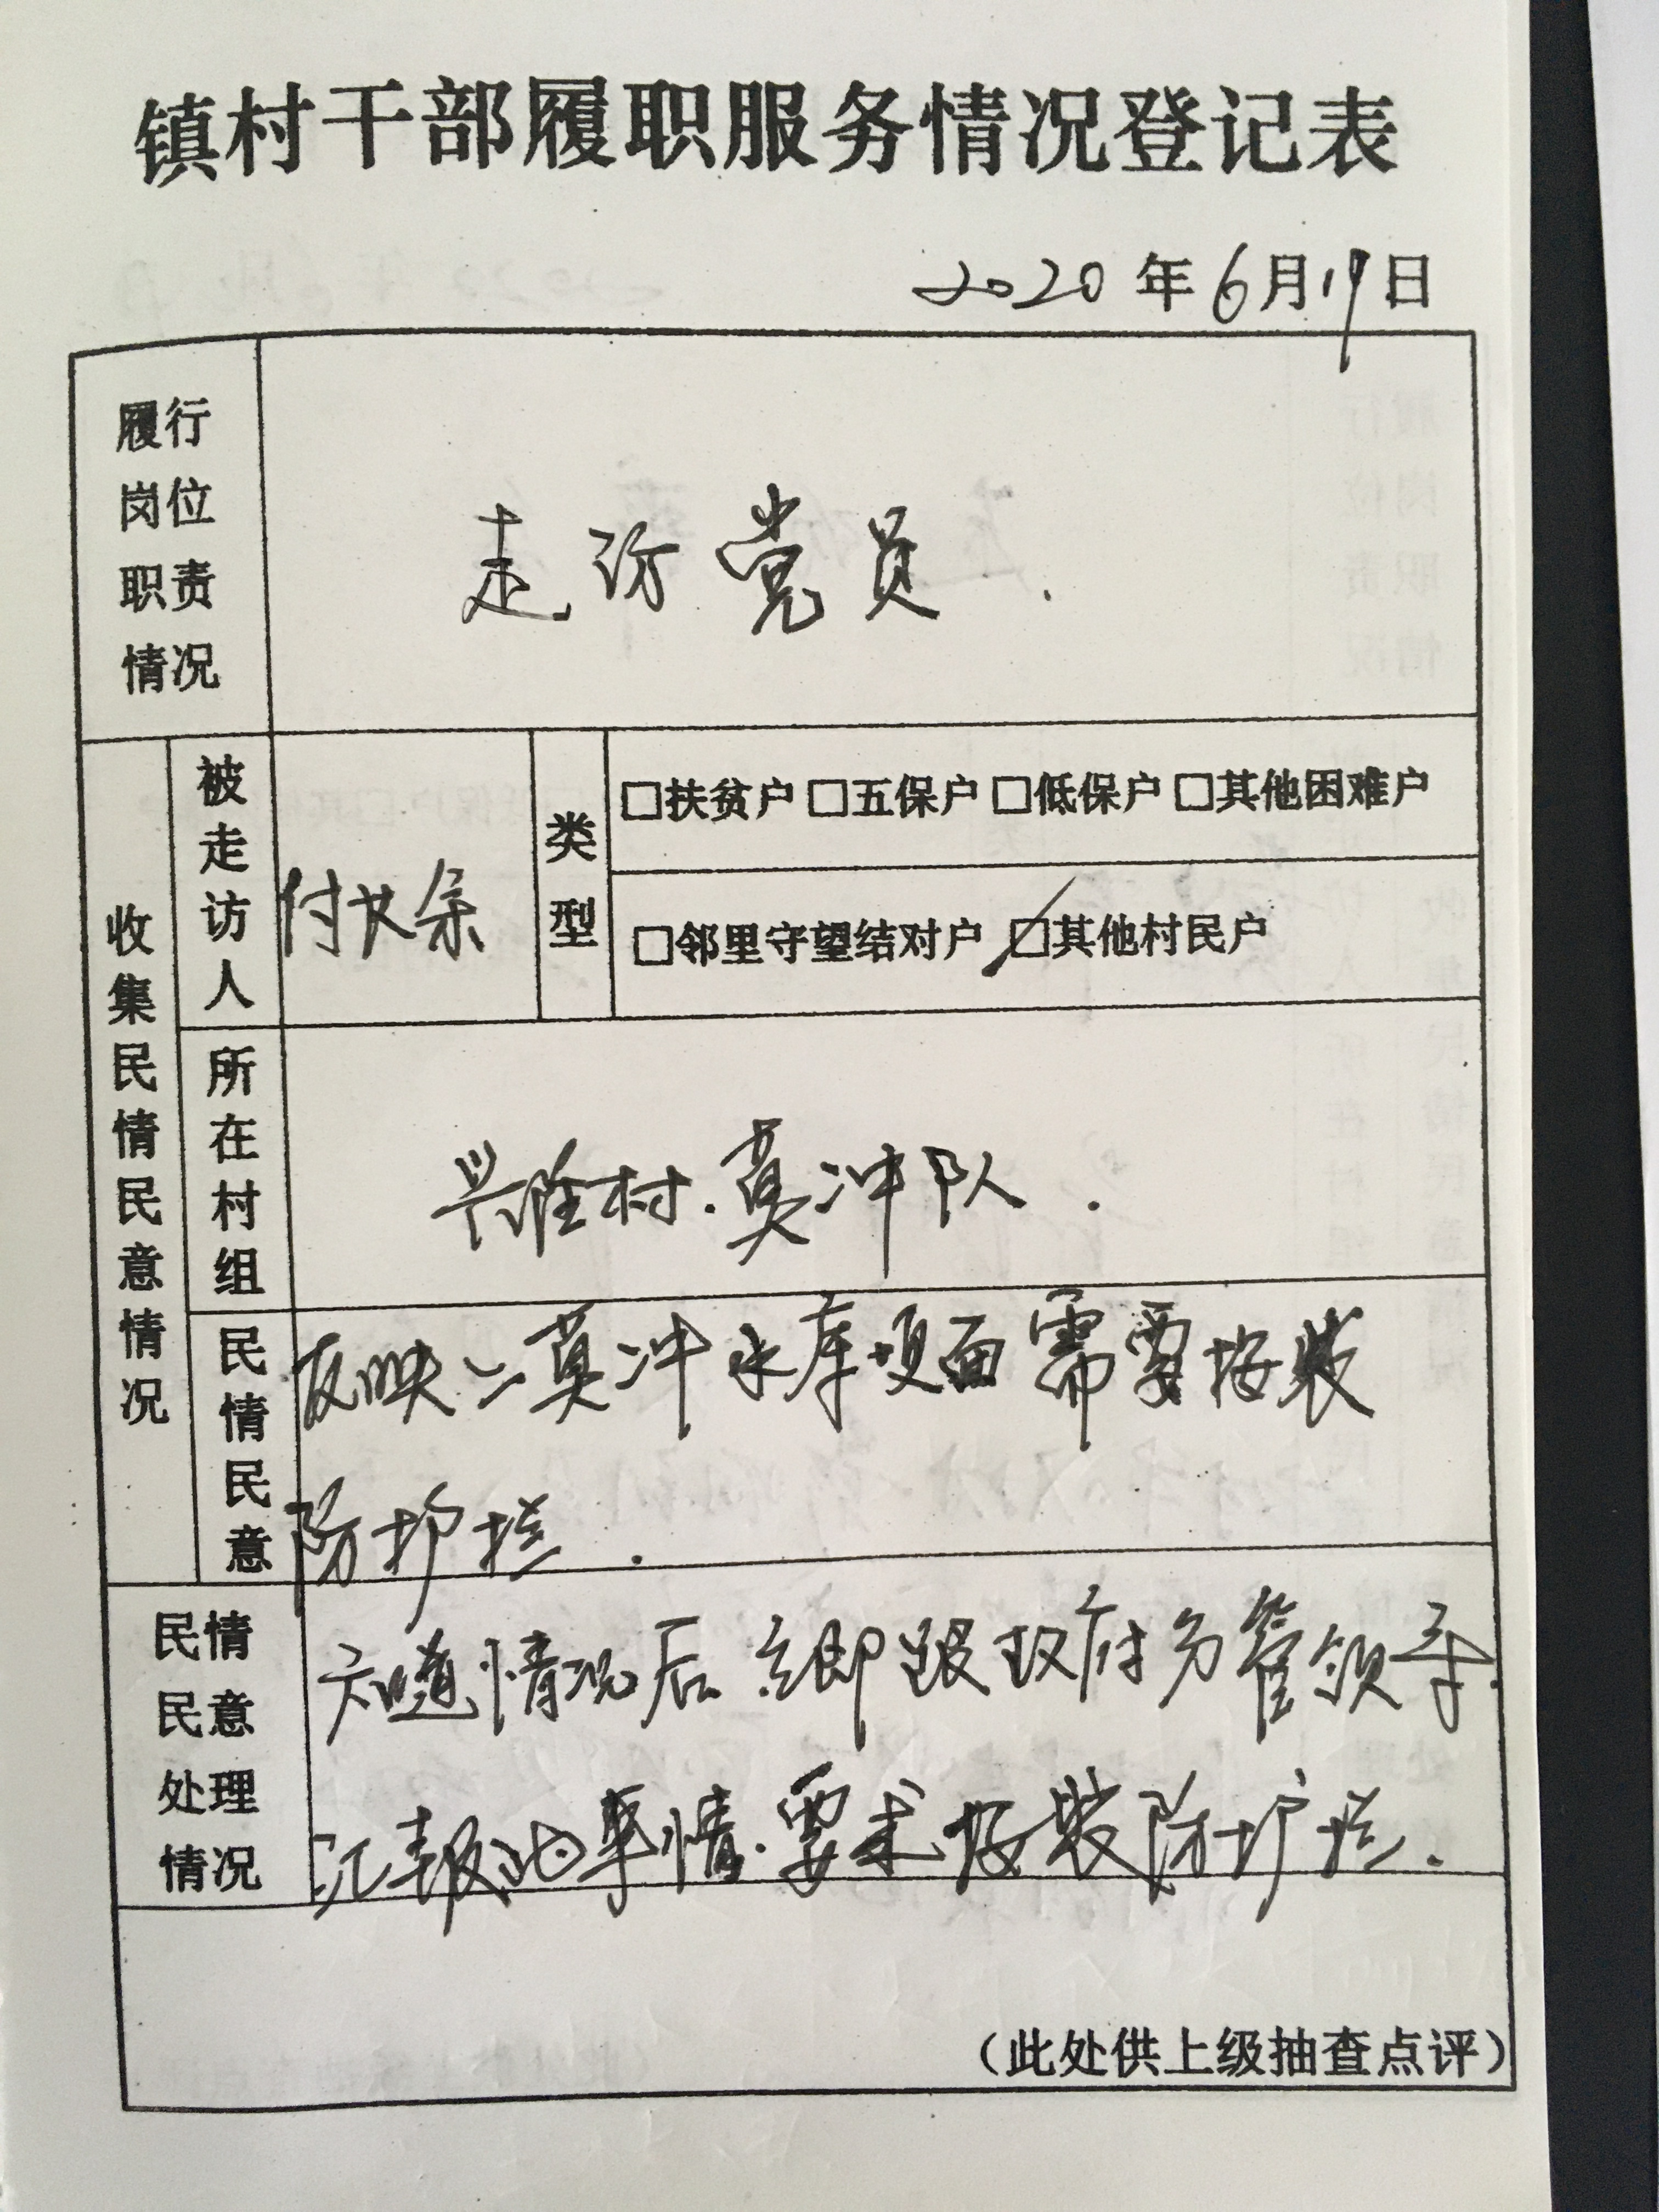 镇村干部履职服务情况登记表
2020年6月19日
履行
岗位
职责
情况
走访党员.
收集民情民意情况
被走访人
付
余
类型
□扶贫户 □五保户 □低保户 □其他困难户
□邻里守望结对户 ☑其他村民户
所在村组
兴胜村.莫冲队.
民情民意
反映:莫冲水库坝面需要按装
防护拦.
民情
民意
处理
情况
知道情况后.立即跟政府分管领导.
汇报此事情.要求按装防护拦.
(此处供上级抽查点评)